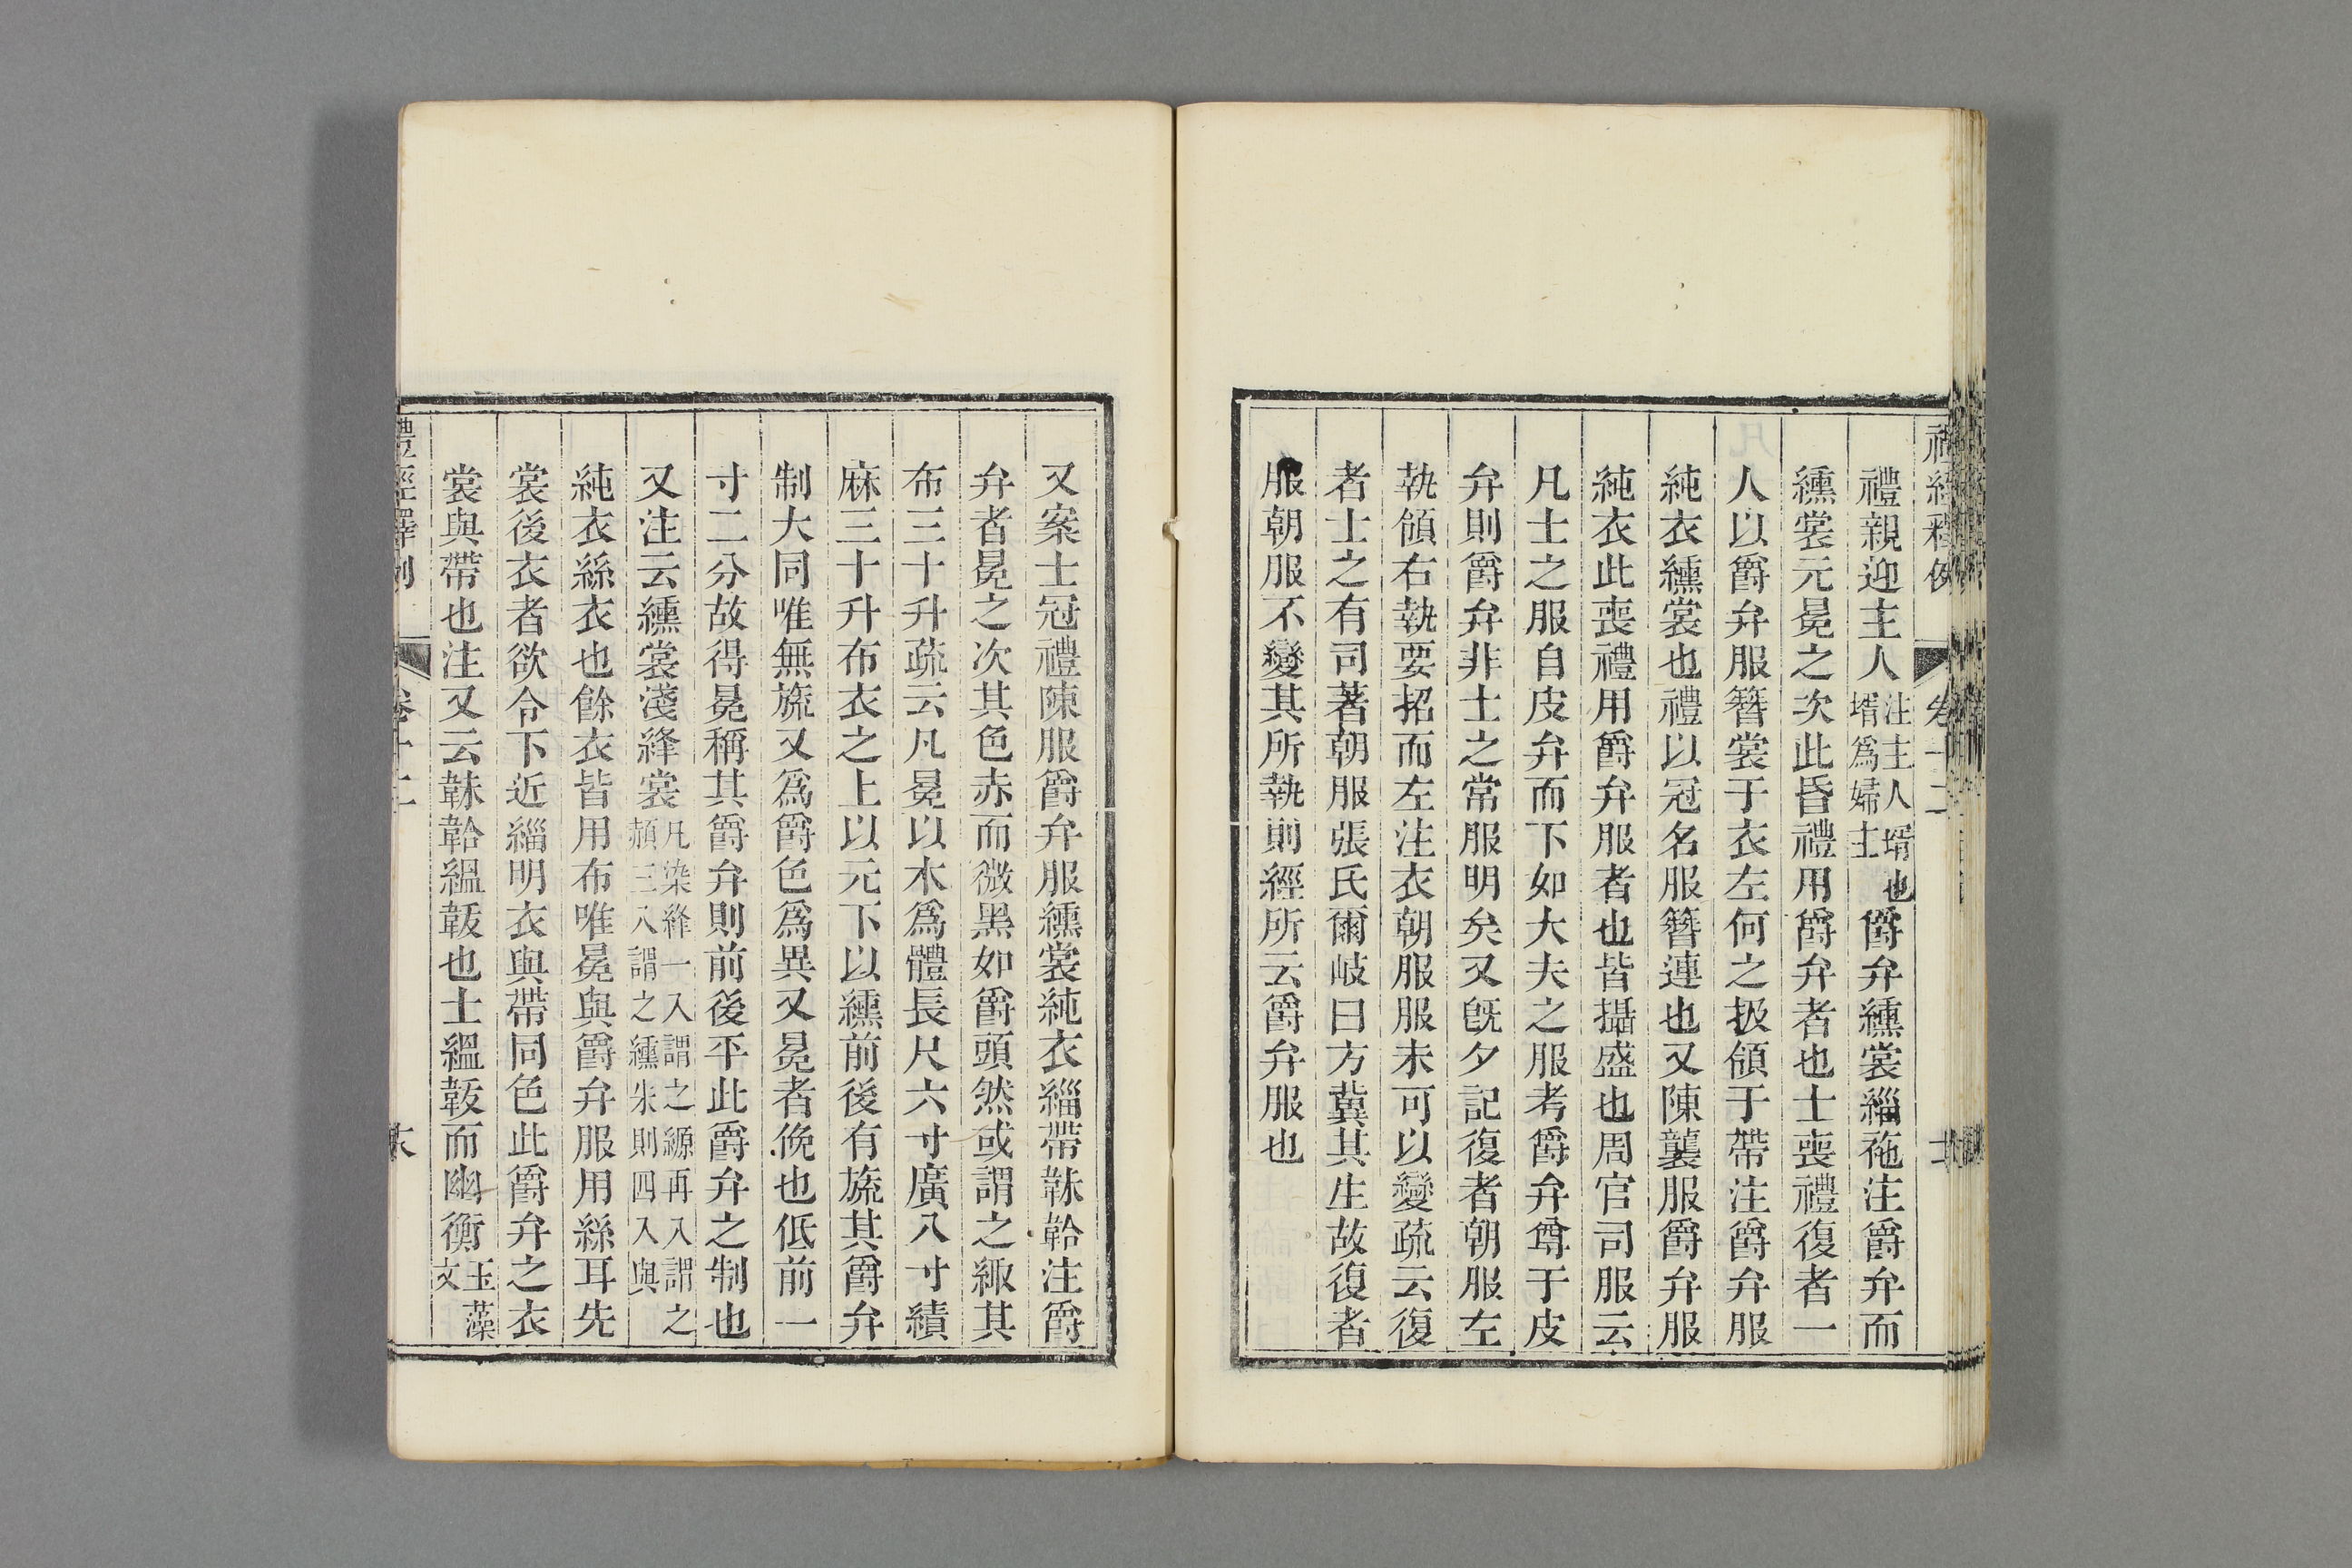 禮經釋例 卷十二
禮親迎主人注主人壻也壻爲婦主爵弁纁裳緇袘注爵弁而
纁裳元冕之次此昏禮用爵弁者也士喪禮復者一
人以爵弁服簪裳于衣左何之扱領于帶注爵弁服
純衣纁裳也禮以冠名服簪連也又陳襲服爵弁服
純衣此喪禮用爵弁服者也皆攝盛也周官司服云
凡士之服自皮弁而下如大夫之服考爵弁尊于皮
弁則爵弁非士之常服明矣又旣夕記復者朝服左
執領右執要招而左注衣朝服服未可以變疏云復
者士之有司著朝服張氏爾岐曰方冀其生故復者
服朝服不變其所執則經所云爵弁服也
又案士冠禮陳服爵弁服纁裳純衣緇帶韎韐注爵
弁者冕之次其色赤而微黑如爵頭然或謂之緅其
布三十升疏云凡冕以木爲體長尺六寸廣八寸績
麻三十升布衣之上以元下以纁前後有旒其爵弁
制大同唯無旒又爲爵色爲異又冕者俛也低前一
寸二分故得冕稱其爵弁則前後平此爵弁之制也
又注云纁裳淺絳裳凡染絳一入謂之縓再入謂之赬三入謂之纁朱則四入與
純衣絲衣也餘衣皆用布唯冕與爵弁服用絲耳先
裳後衣者欲令下近緇明衣與帶同色此爵弁之衣
裳與帶也注又云韎韐縕韍也士縕韍而幽衡玉藻文
禮經釋例 卷十二